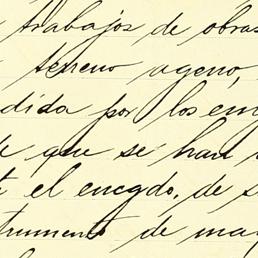 trabajos de obras
terreno ageno,
dida por los em
e que se han
t el encgdo. de s
trumento de ma